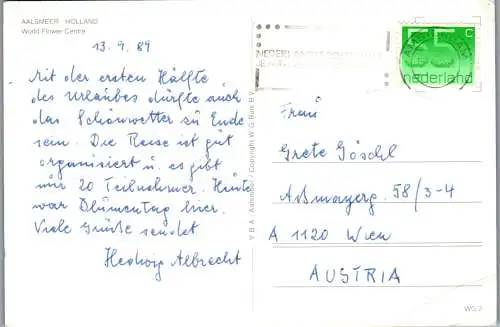 AALSMEER HOLLAND
World Flower Centre
13.9.89
Mit der ersten Hälfte
des Urlaubes dürfte auch
das Schönwetter zu Ende
sein. Die Reise ist gut
organisiert u. es gibt
nur 20 Teilnehmer. Heute
war Blumentag hier.
Viele Grüße sendet
Hedwig Albrecht
V.B.A. Aalsmeer / Copyright W.G. Bunk BV
55 c
nederland
AMSTERDAM
Frau
Grete Göschl
Aßmayerg. 58/3-4
A 1120 Wien
AUSTRIA